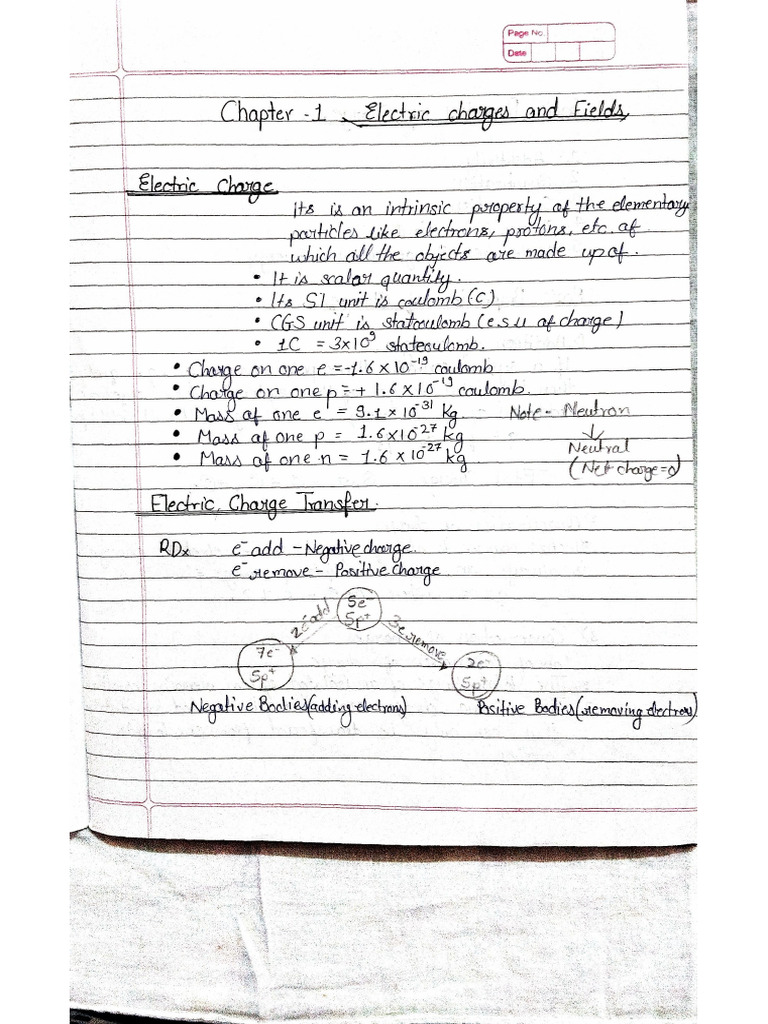 Page No.
Date
Chapter - 1 Electric charges and Fields
Electric Charge
Its is an intrinsic property of the elementary
particles like electrons, protons, etc. of
which all the objects are made up of.
• It is scalar quantity.
• Its SI unit is coulomb (C)
• CGS unit is statcoulomb (e.s.u of charge)
• 1C = 3×10⁹ statecoulomb.
• Charge on one e = -1.6 × 10⁻¹⁹ coulomb
• Charge on one p = + 1.6 × 10⁻¹⁹ coulomb.
• Mass of one e⁻ = 9.1 × 10⁻³¹ kg Note - Neutron
• Mass of one p = 1.6×10⁻²⁷ kg ↓
• Mass of one n = 1.6 × 10⁻²⁷ kg Neutral
(Net charge=0)
Electric Charge Transfer.
RDx e⁻ add - Negative charge
e⁻ remove - Positive charge
5e⁻
5p⁺
2e⁻ add 3e remove
7e⁻ 2e⁻
5p⁺ 5p⁺
Negative Bodies(adding electrons) Positive Bodies(removing electrons)